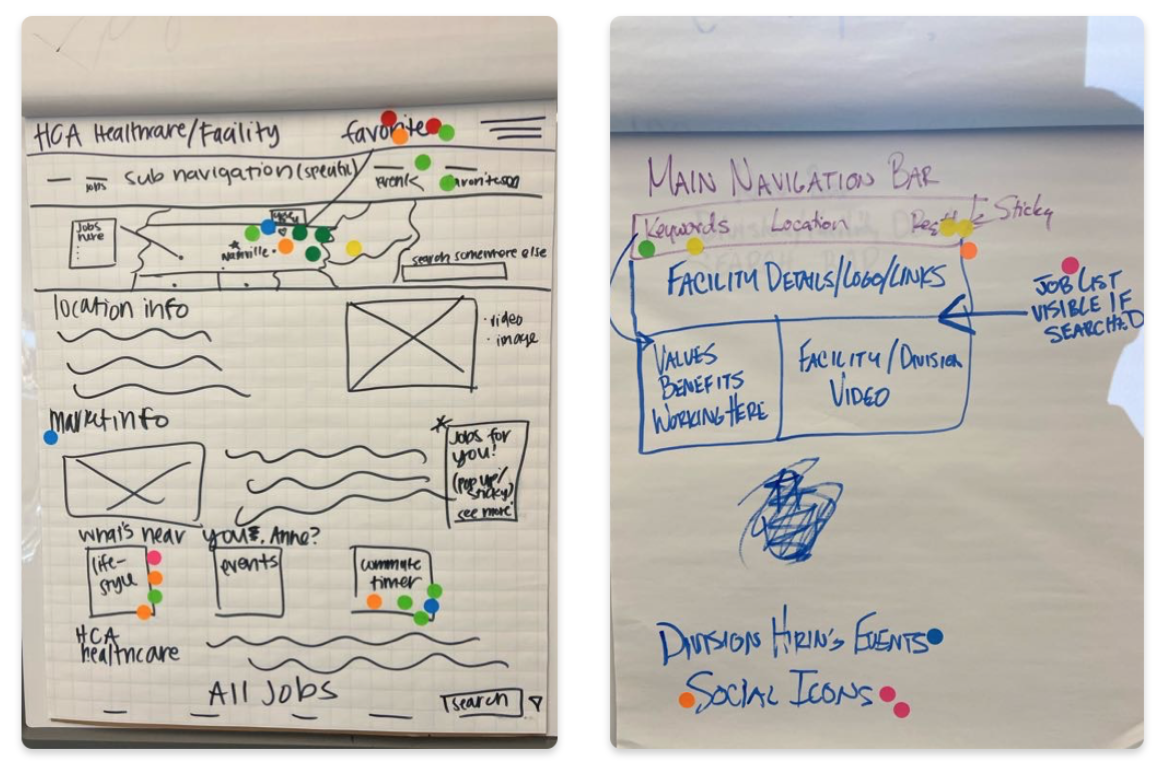 HCA Healthcare/Facility favorite
Jobs sub navigation (specific) events favorites
Jobs
here
Nashville
search somewhere else
location info
· video
· image
market info
Jobs for
you!
(pop up/
sticky)
see more
what's near you, Anne?
life-
style
events
commute
timer
HCA
healthcare
All Jobs
search
Main Navigation Bar
Keywords Location Sticky
Facility Details/Logo/Links
Job List
Visible If
Searched
Values
Benefits
Working Here
Facility/Division
Video
Division Hirin's Events
Social Icons